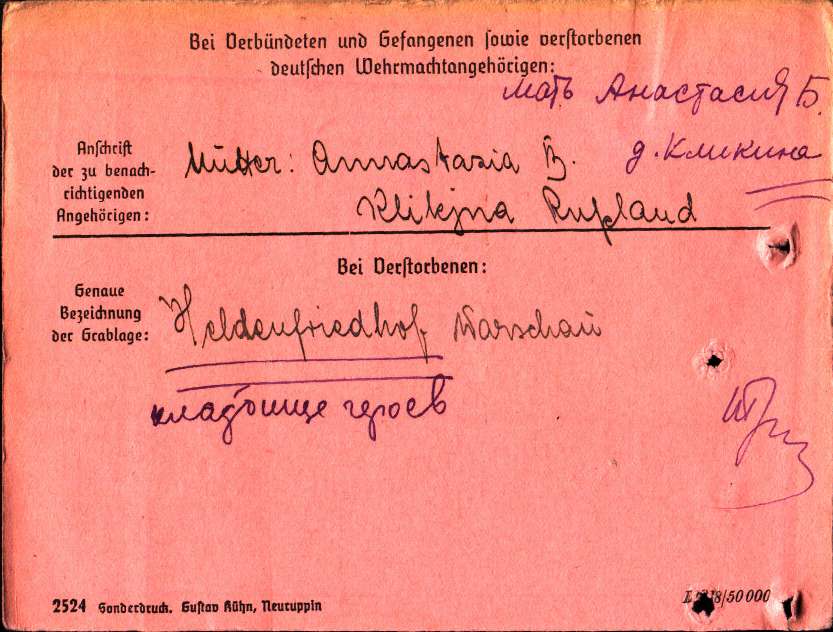 Bei Verbündeten und Gefangenen sowie verstorbenen
deutschen Wehrmachtangehörigen:
мать Анастасия Б.
д. Кликина
Anschrift
der zu benach-
richtigenden
Angehörigen:
Mutter: Annastasia B.
Klikjna Rußland
Bei Verstorbenen:
Genaue
Bezeichnung
der Grablage:
Heldenfriedhof Warschau
кладбище героев
2524 Sonderdruck. Gustav Kühn, Neuruppin
8/50000